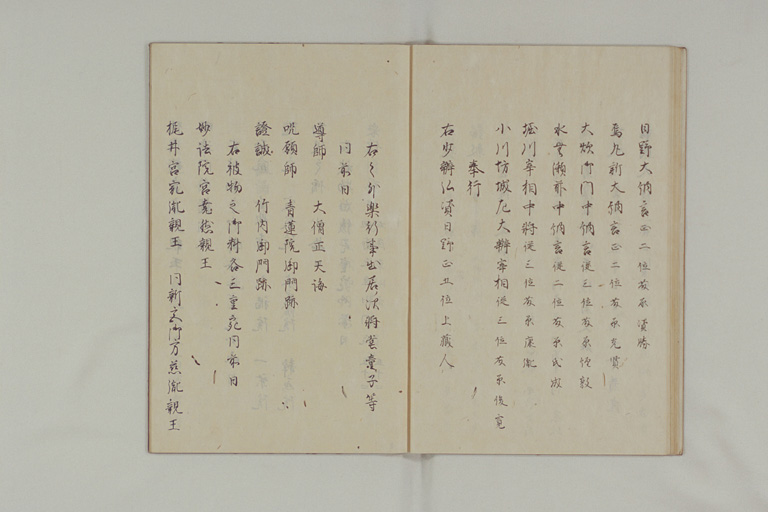 日野大納言正二位藤原資勝
烏丸新大納言正二位藤原光賢
大炊御門中納言従三位藤原経敦
水無瀬前中納言従二位藤原氏成
堀川宰相中将従三位藤原康胤
小川坊城左大辨宰相従三位藤原俊完
奉行
右少辨弘資日野正五位上蔵人
右之外楽行事出居次将堂童子等
同前日
導師 大僧正天海
呪願師 青蓮院御門跡
證誠 竹内御門跡
右被物之御料各三重宛同前日
妙法院宮堯然親王
梶井宮宛胤親王 同新宮御方慈胤親王